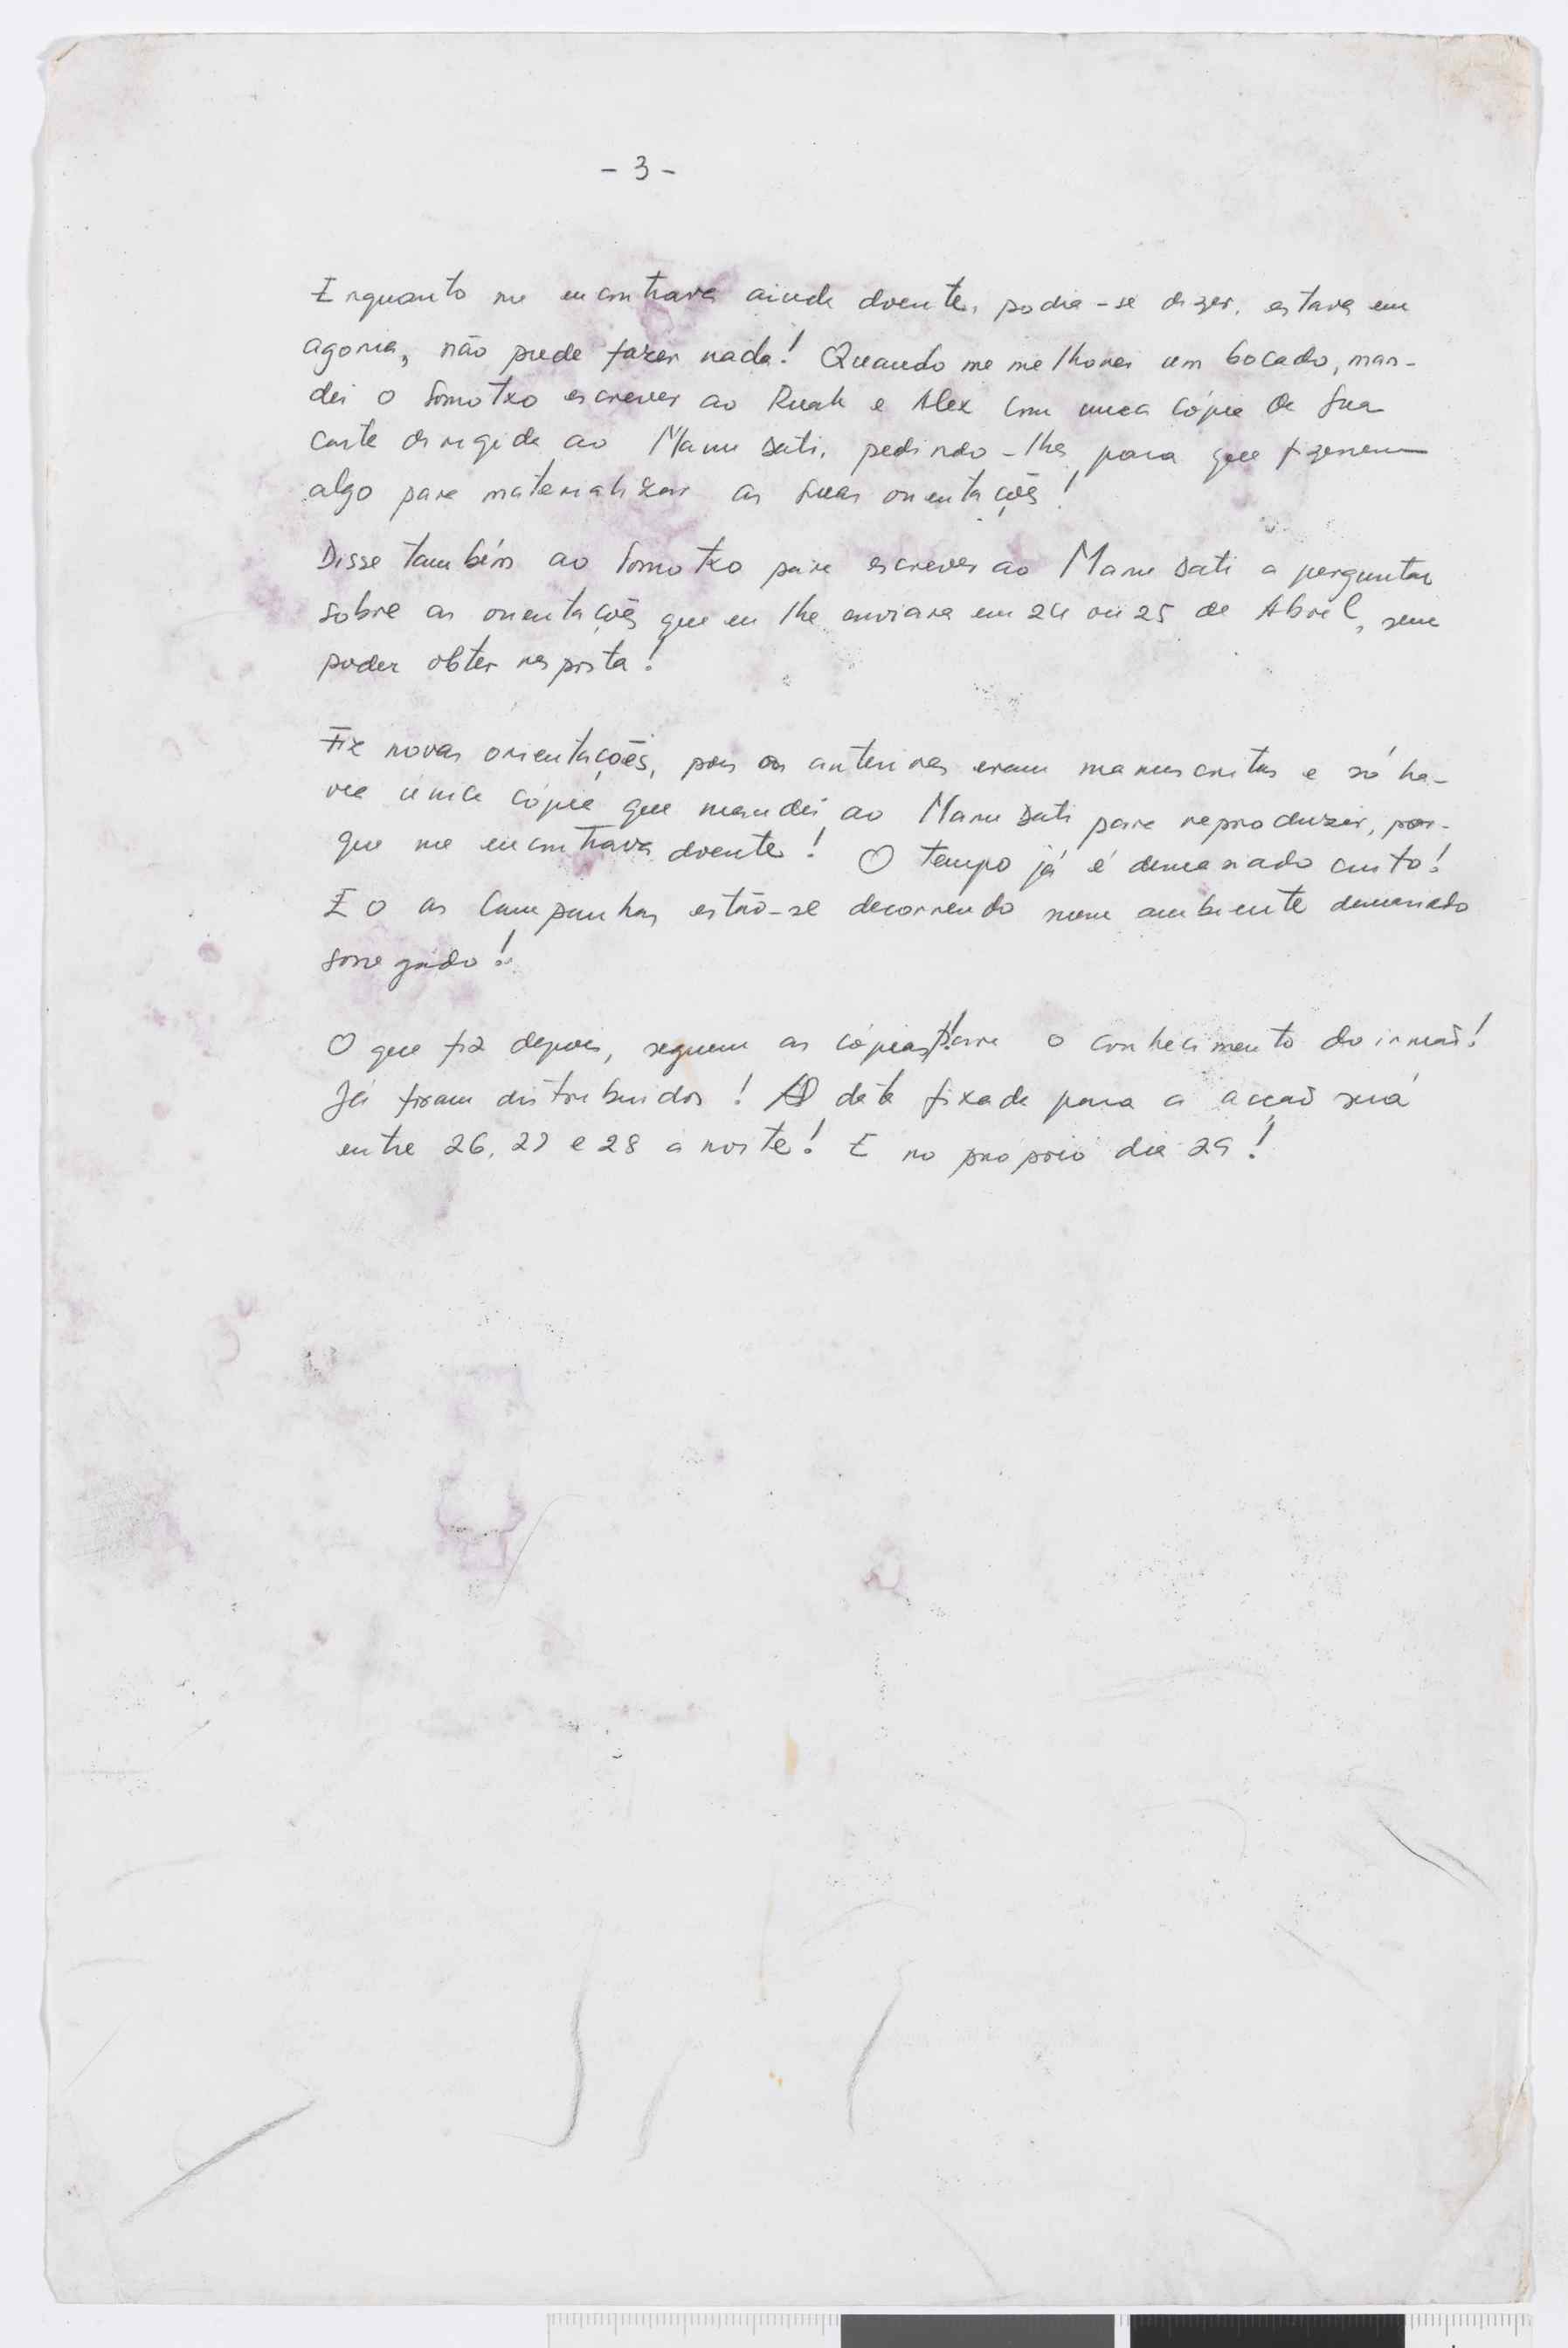 - 3 -
Enquanto me encontrava ainda doente, podia-se dizer, estava em
agonia, não pude fazer nada! Quando me melhorei um bocado, man-
dei o Somotxo escrever ao Ruak e Alex com uma cópia de Sua
carta dirigida ao Manu Sati, pedindo-lhes para que fizessem
algo para materializar as Suas orientações!
Disse também ao Somotxo para escrever ao Manu Sati a perguntar
sobre as orientações que eu lhe enviara em 24 ou 25 de Abril, sem
poder obter resposta!
Fiz novas orientações, pois as anteriores eram manuscritas e só ha-
via única cópia que mandei ao Manu Sati para reproduzir, por-
que me encontrava doente! O tempo já é demasiado curto!
E as Campanhas estão-se decorrendo num ambiente demasiado
sossegado!
O que fiz depois, seguem as cópias para o conhecimento do irmão!
Já foram distribuidos! A data fixada para a acção será
entre 26, 27 e 28 à noite! E no próprio dia 29!